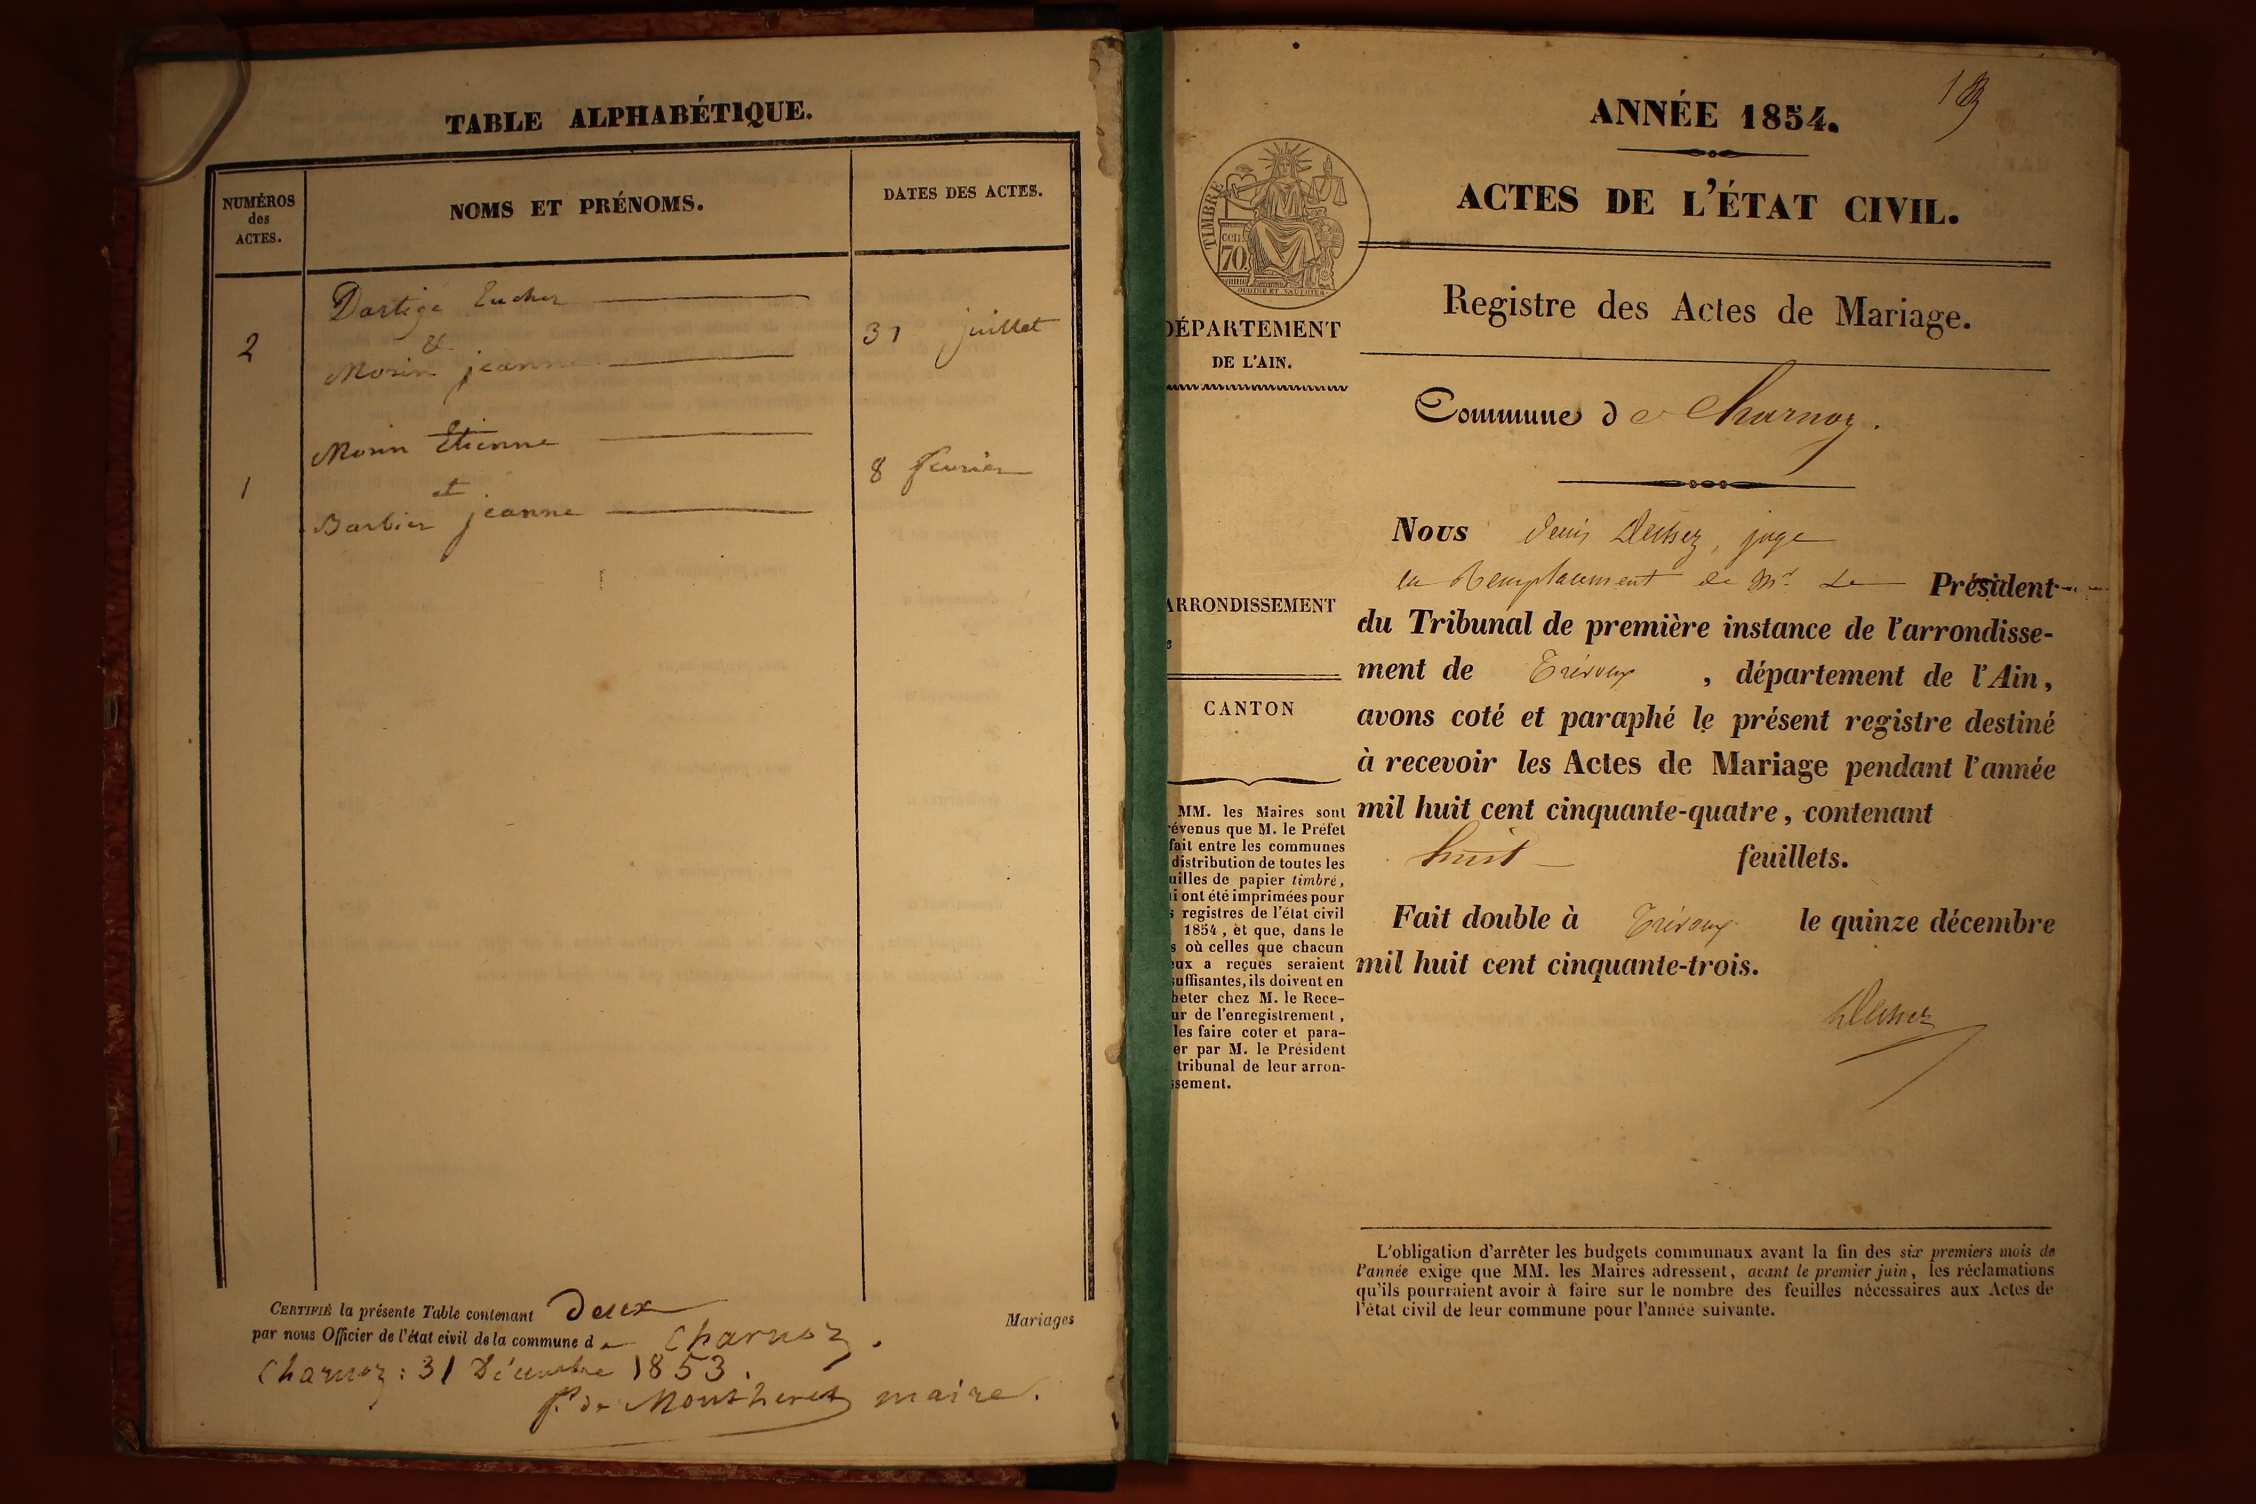 TABLE ALPHABÉTIQUE.
NUMÉROS
des
ACTES.
NOMS ET PRÉNOMS.
DATES DES ACTES.
Dartige Eucher
2
&
31 juillet
Morin jeanne
Morin Etienne
1
et
8 fevrier
Barbier jeanne
CERTIFIÉ la présente Table contenant deux Mariages
par nous Officier de l'état civil de la commune de Charnoz.
Charnoz : 31 Décembre 1853.
maire.
ANNÉE 1854.
ACTES DE L'ÉTAT CIVIL.
TIMBRE
cen.
70.
DÉPARTEMENT
DE L'AIN.
Registre des Actes de Mariage.
Commune de Charnoz.
ARRONDISSEMENT
CANTON
MM. les Maires sont
évenus que M. le Préfet
fait entre les communes
distribution de toutes les
uilles de papier timbré,
i ont été imprimées pour
s registres de l'état civil
1854, et que, dans le
s où celles que chacun
eux a reçues seraient
suffisantes, ils doivent en
heter chez M. le Rece-
ur de l'enregistrement,
les faire coter et para-
er par M. le Président
tribunal de leur arron-
ssement.
Nous Denis juge
en Remplacement de Mr Le Président
du Tribunal de première instance de l'arrondisse-
ment de Trévoux, département de l'Ain,
avons coté et paraphé le présent registre destiné
à recevoir les Actes de Mariage pendant l'année
mil huit cent cinquante-quatre, contenant
huit feuillets.
Fait double à Trévoux le quinze décembre
mil huit cent cinquante-trois.
L'obligation d'arrêter les budgets communaux avant la fin des six premiers mois de
l'année exige que MM. les Maires adressent, avant le premier juin, les réclamations
qu'ils pourraient avoir à faire sur le nombre des feuilles nécessaires aux Actes de
l'état civil de leur commune pour l'année suivante.